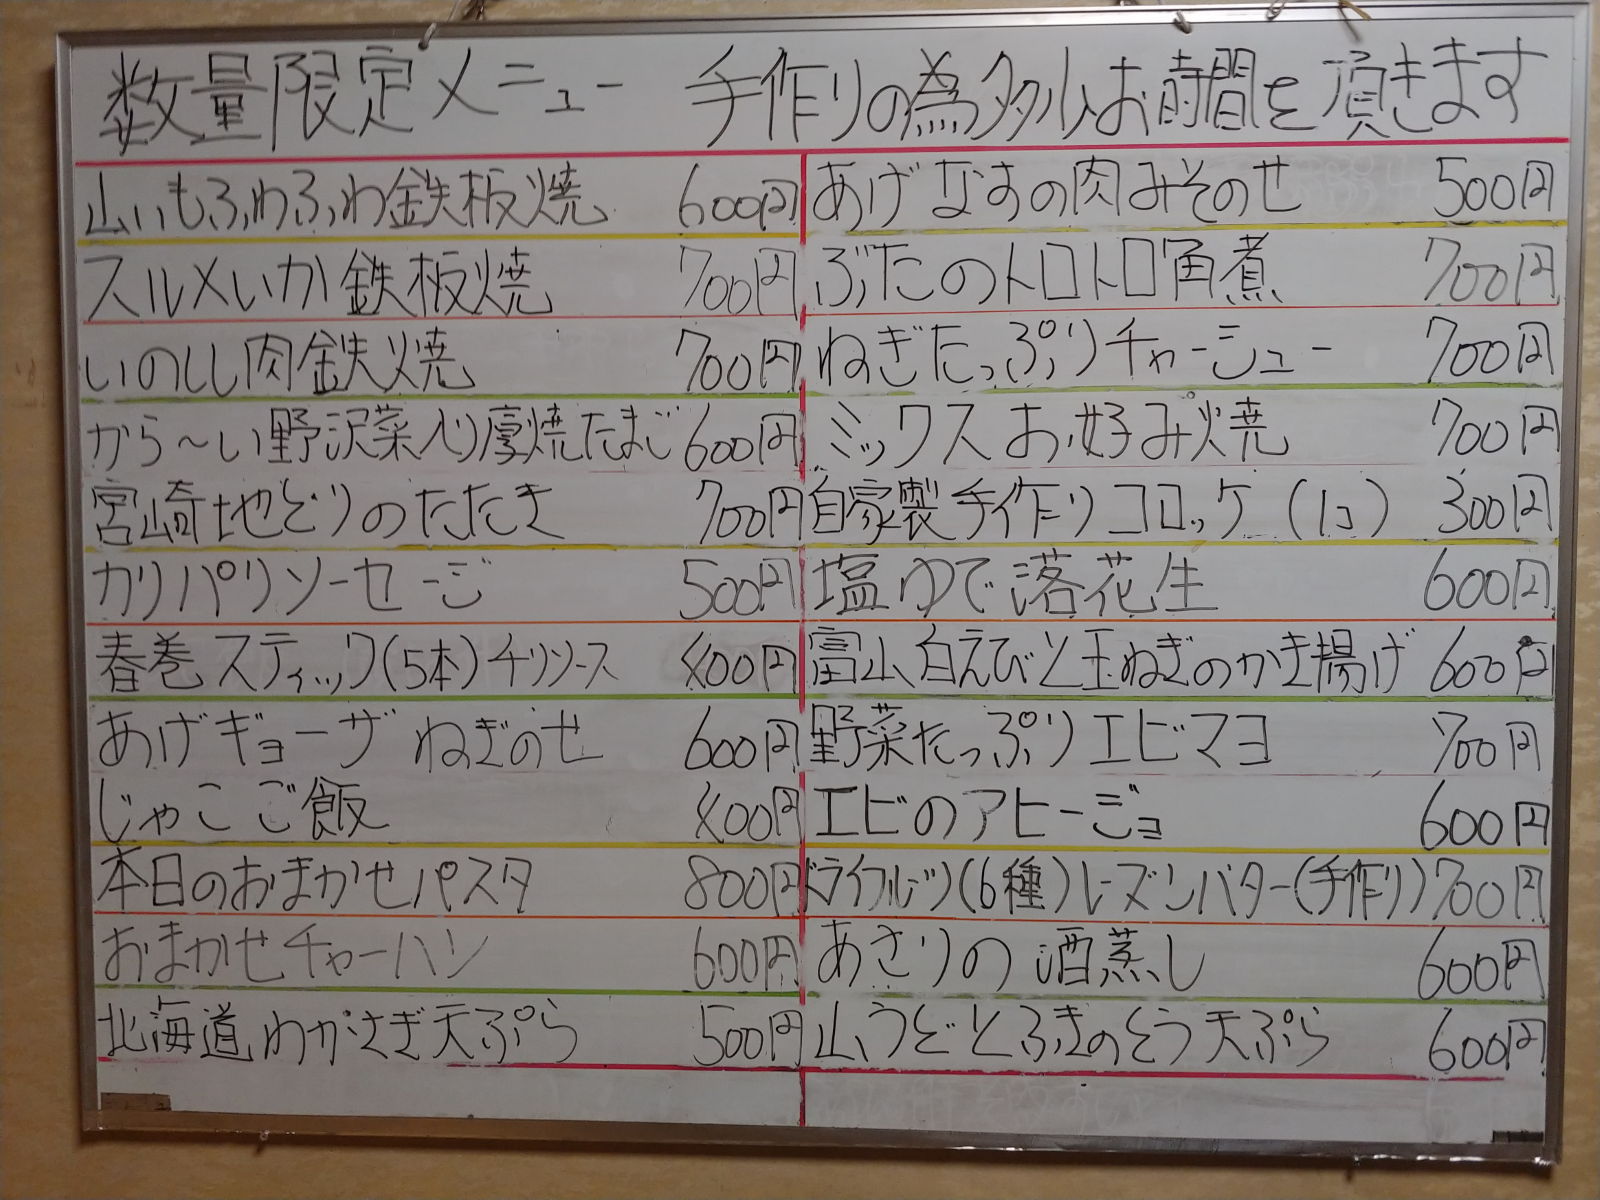 数量限定メニュー 手作りの為多少お時間を頂きます
山いもふわふわ鉄板焼 600円
スルメいか鉄板焼 700円
いのしし肉鉄焼 700円
から〜い野沢菜入り厚焼たまご 600円
宮崎地どりのたたき 700円
カリパリソーセージ 500円
春巻スティック(5本)チリソース 400円
あげギョーザねぎのせ 600円
じゃこご飯 400円
本日のおまかせパスタ 800円
おまかせチャーハン 600円
北海道わかさぎ天ぷら 500円
あげなすの肉みそのせ 500円
ぶたのトロトロ角煮 700円
ねぎたっぷりチャーシュー 700円
ミックスお好み焼 700円
自家製手作りコロッケ(1コ) 300円
塩ゆで落花生 600円
富山白えびと玉ねぎのかき揚げ 600円
野菜たっぷりエビマヨ 700円
エビのアヒージョ 600円
ドライフルーツ(6種)レーズンバター(手作り) 700円
あさりの酒蒸し 600円
山うどとふきのとう天ぷら 600円